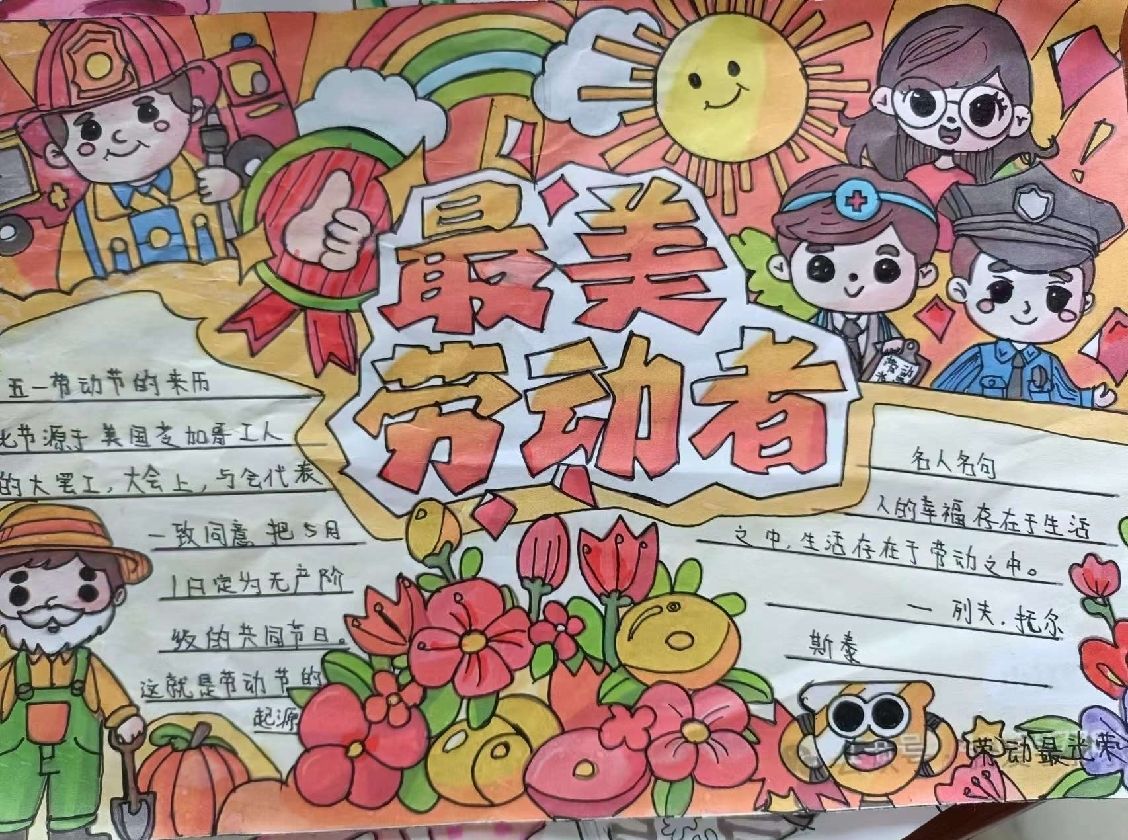 最美
劳动者
五一劳动节的来历
此节源于美国芝加哥工人
的大罢工,大会上,与会代表
一致同意把5月
1日定为无产阶
级的共同节日。
这就是劳动节的
起源
名人名句
人的幸福存在于生活
之中,生活存在于劳动之中。
— 列夫.托尔
斯泰
劳动最光荣